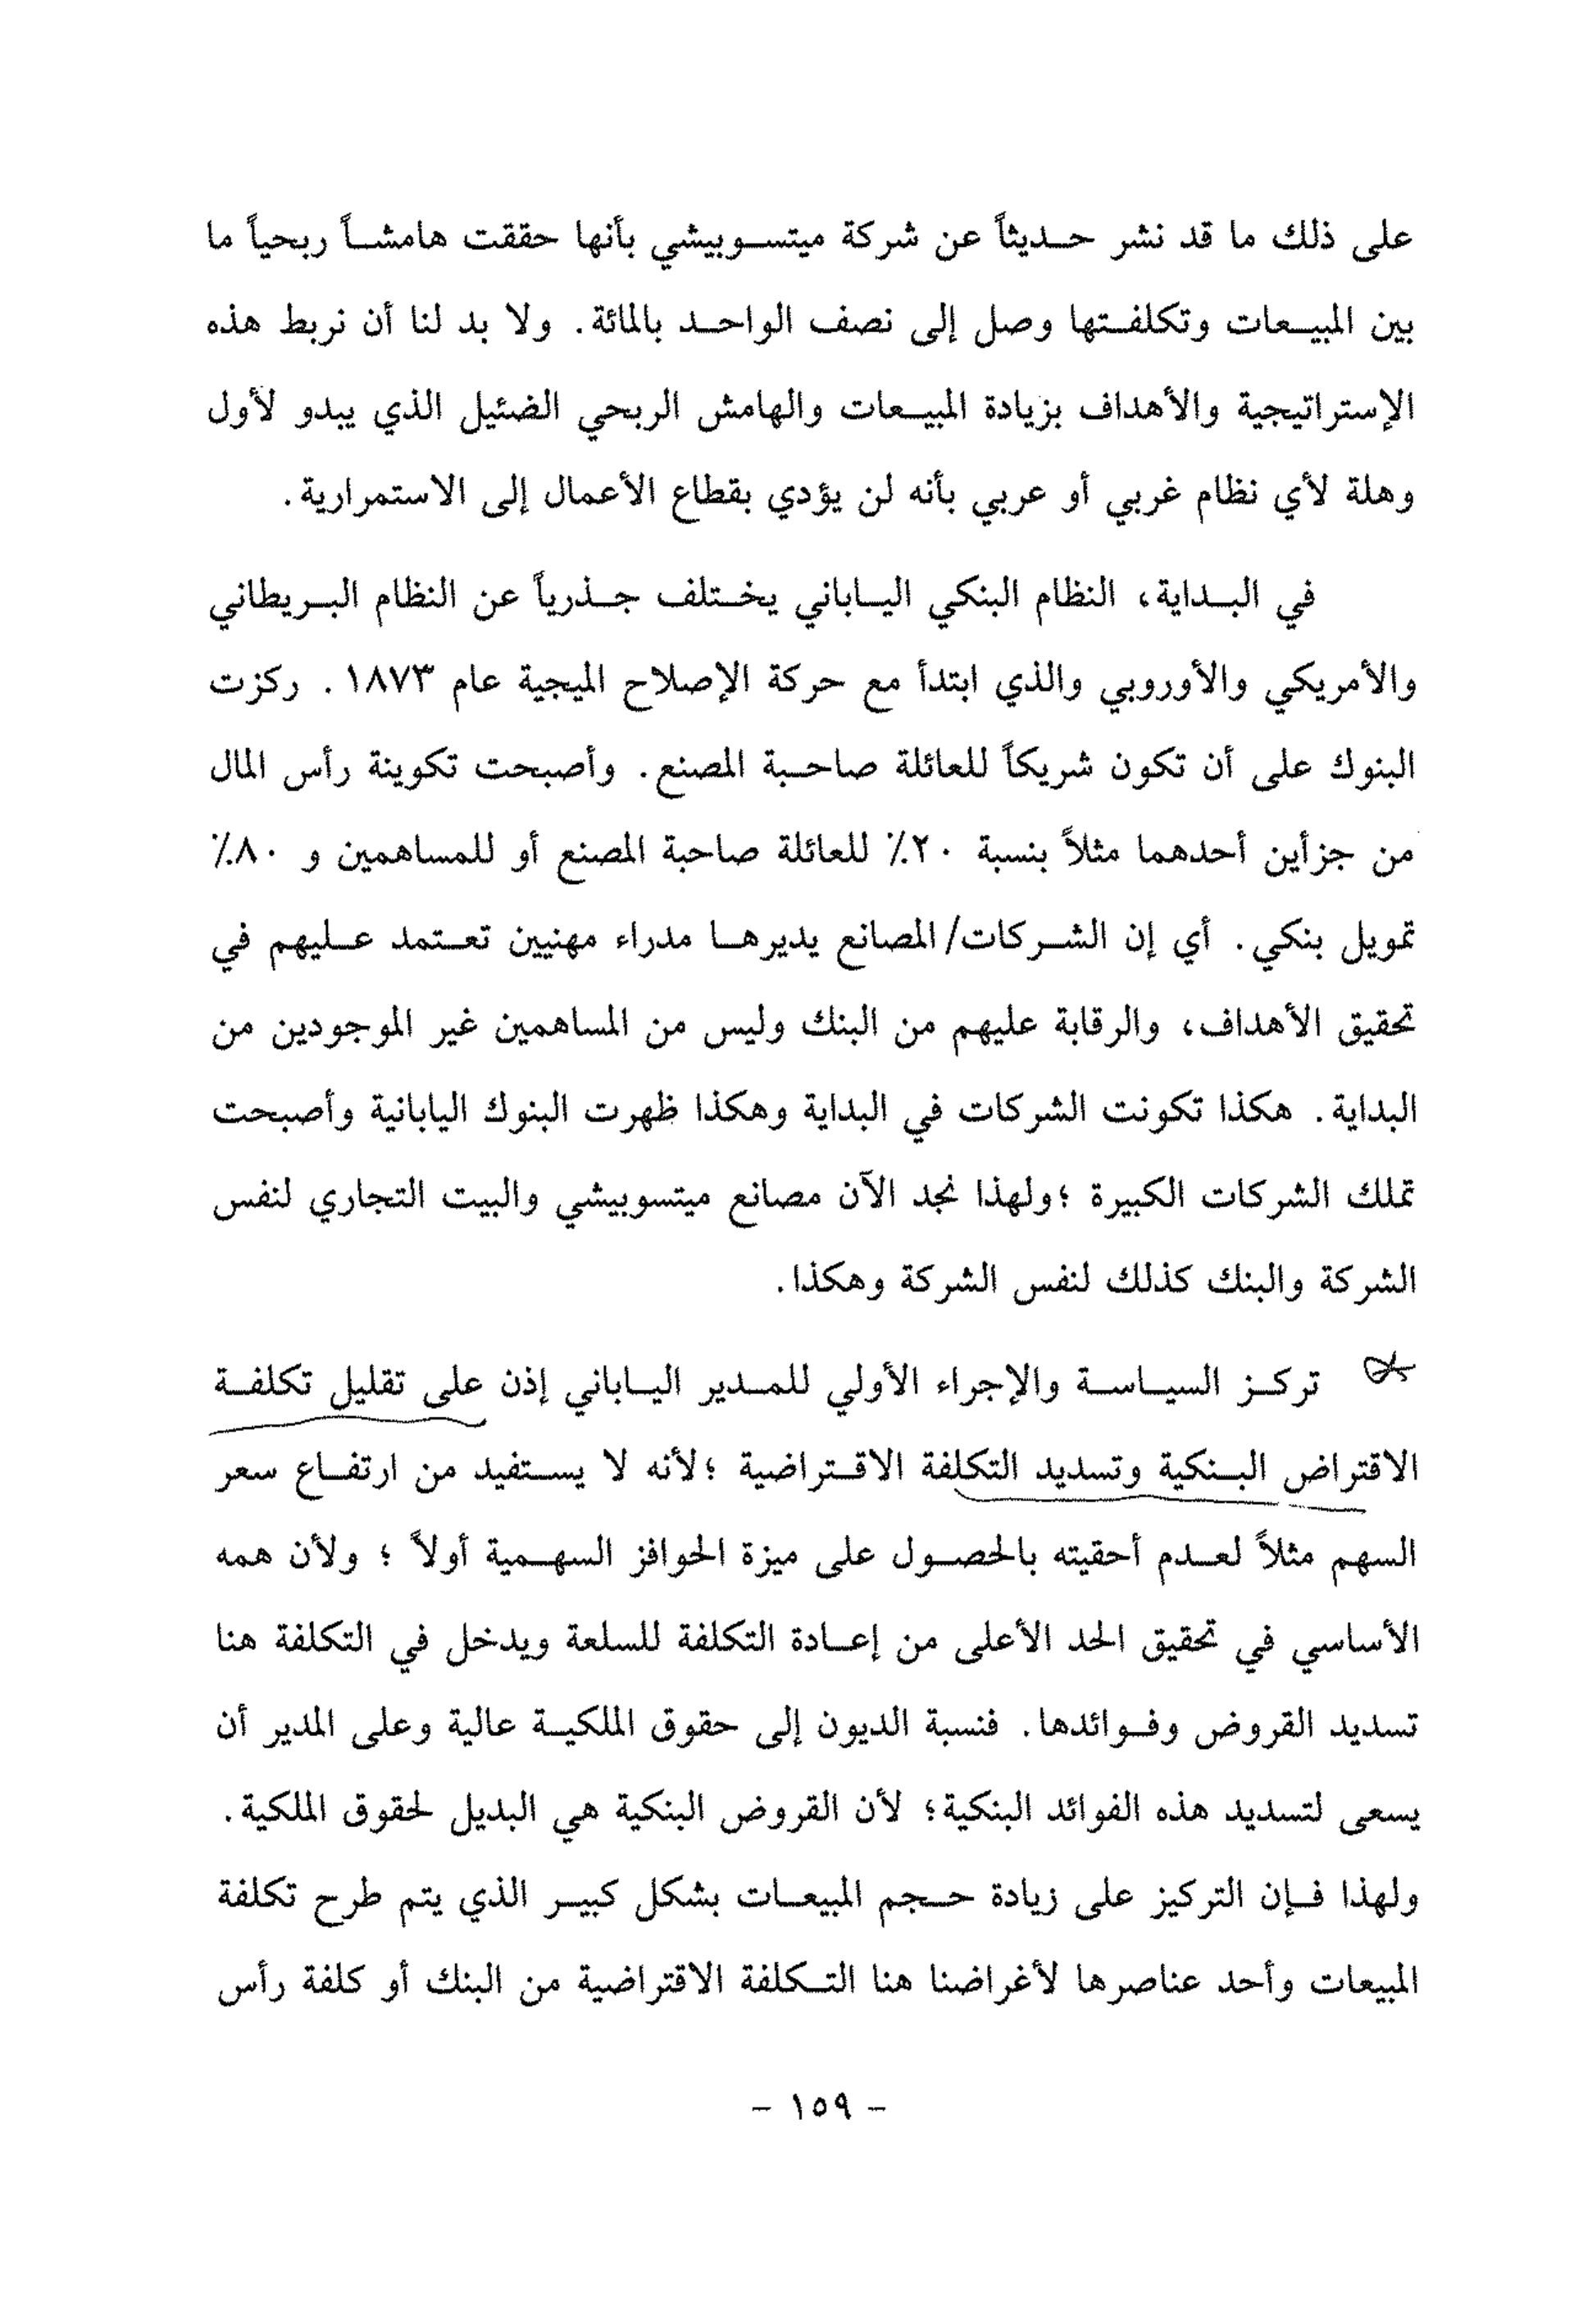 على ذلك ما قد نشر حديثاً عن شركة ميتسوبيشي بأنها حققت هامشاً ربحياً ما
بين المبيعات وتكلفتها وصل إلى نصف الواحد بالمائة. ولا بد لنا أن نربط هذه
الإستراتيجية والأهداف بزيادة المبيعات والهامش الربحي الضئيل الذي يبدو لأول
وهلة لأي نظام غربي أو عربي بأنه لن يؤدي بقطاع الأعمال إلى الاستمرارية.
في البداية، النظام البنكي الياباني يختلف جذرياً عن النظام البريطاني
والأمريكي والأوروبي والذي ابتدأ مع حركة الإصلاح الميجية عام ١٨٧٣. ركزت
البنوك على أن تكون شريكاً للعائلة صاحبة المصنع. وأصبحت تكوينة رأس المال
من جزأين أحدهما مثلاً بنسبة ٢٠٪ للعائلة صاحبة المصنع أو للمساهمين و ٨٠٪
تمويل بنكي. أي إن الشركات/المصانع يديرها مدراء مهنيين تعتمد عليهم في
تحقيق الأهداف، والرقابة عليهم من البنك وليس من المساهمين غير الموجودين من
البداية. هكذا تكونت الشركات في البداية وهكذا ظهرت البنوك اليابانية وأصبحت
تملك الشركات الكبيرة ؛ولهذا نجد الآن مصانع ميتسوبيشي والبيت التجاري لنفس
الشركة والبنك كذلك لنفس الشركة وهكذا.
تركز السياسة والإجراء الأولي للمدير الياباني إذن على تقليل تكلفة
الاقتراض البنكية وتسديد التكلفة الاقتراضية ؛لأنه لا يستفيد من ارتفاع سعر
السهم مثلاً لعدم أحقيته بالحصول على ميزة الحوافز السهمية أولاً ؛ ولأن همه
الأساسي في تحقيق الحد الأعلى من إعادة التكلفة للسلعة ويدخل في التكلفة هنا
تسديد القروض وفوائدها. فنسبة الديون إلى حقوق الملكية عالية وعلى المدير أن
يسعى لتسديد هذه الفوائد البنكية؛ لأن القروض البنكية هي البديل لحقوق الملكية.
ولهذا فإن التركيز على زيادة حجم المبيعات بشكل كبير الذي يتم طرح تكلفة
المبيعات وأحد عناصرها لأغراضنا هنا التكلفة الاقتراضية من البنك أو كلفة رأس
- ١٥٩ -